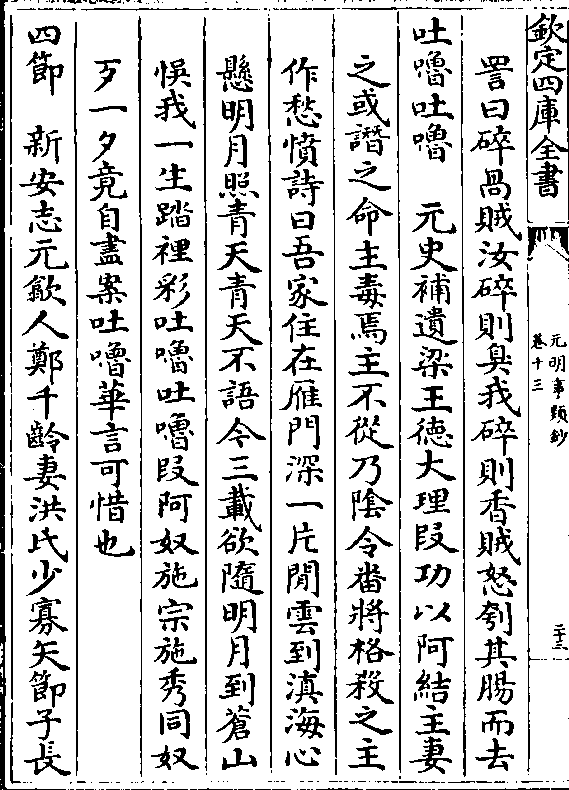 欽定四庫全書
元明事類鈔
卷十三
二十三
詈曰碎咼賊汝碎則臭我碎則香賊怒刳其腸而去
吐嚕吐嚕　元史補遺梁王徳大理段功以阿結主妻
之或譖之命主毒焉主不從乃隂令畨將格殺之主
作愁憤詩曰吾家住在雁門深一片閒雲到滇海心
懸明月照青天青天不語今三載欲隨明月到蒼山
悞我一生踏裡彩吐嚕吐嚕段阿奴施宗施秀同奴
歹一夕竟自盡案吐嚕華言可惜也
四節　新安志元歙人鄭千齡妻洪氏少寡矢節子長